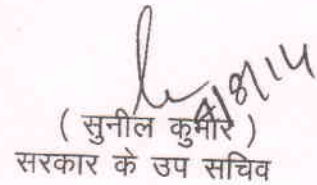 ( सुनील कुमार )
सरकार के उप सचिव